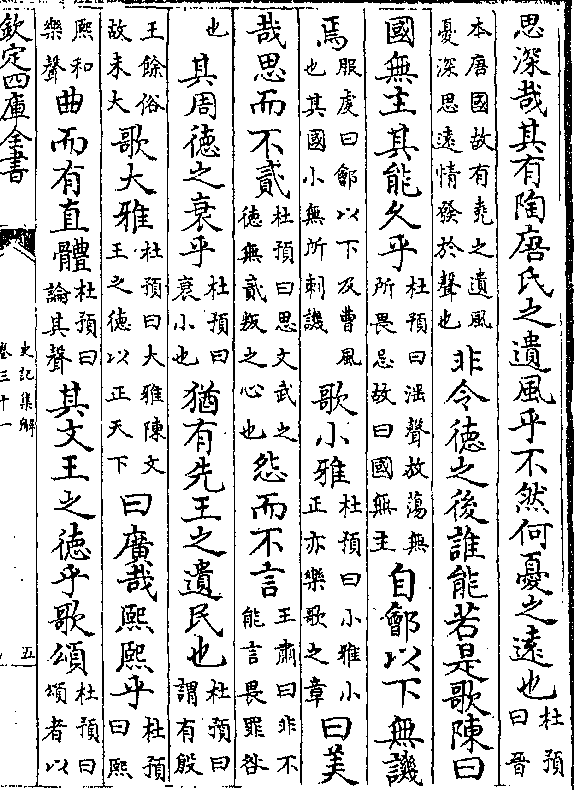 思深哉其有陶唐氏之遺風乎不然何憂之遠也杜預曰晉
本唐國故有堯之遺風憂深思遠情發於聲也非令德之後誰能若是歌陳曰
國無主其能久乎杜預曰淫聲放蕩無所畏忌故曰國無主自鄶以下無譏
焉服虔曰鄶以下及曹風也其國小無所刺譏歌小雅杜預曰小雅小正亦樂歌之章曰美
哉思而不貳杜預曰思文武之德無貳叛之心也怨而不言王肅曰非不能言畏罪咎
也其周德之衰乎杜預曰衰小也猶有先王之遺民也杜預曰謂有殷
王餘俗故未大歌大雅杜預曰大雅陳文王之德以正天下曰廣哉熙熙乎杜預曰熙
熙和樂聲曲而有直體杜預曰論其聲其文王之德乎歌頌杜預曰頌者以
欽定四庫全書
史記集解
卷三十一
五